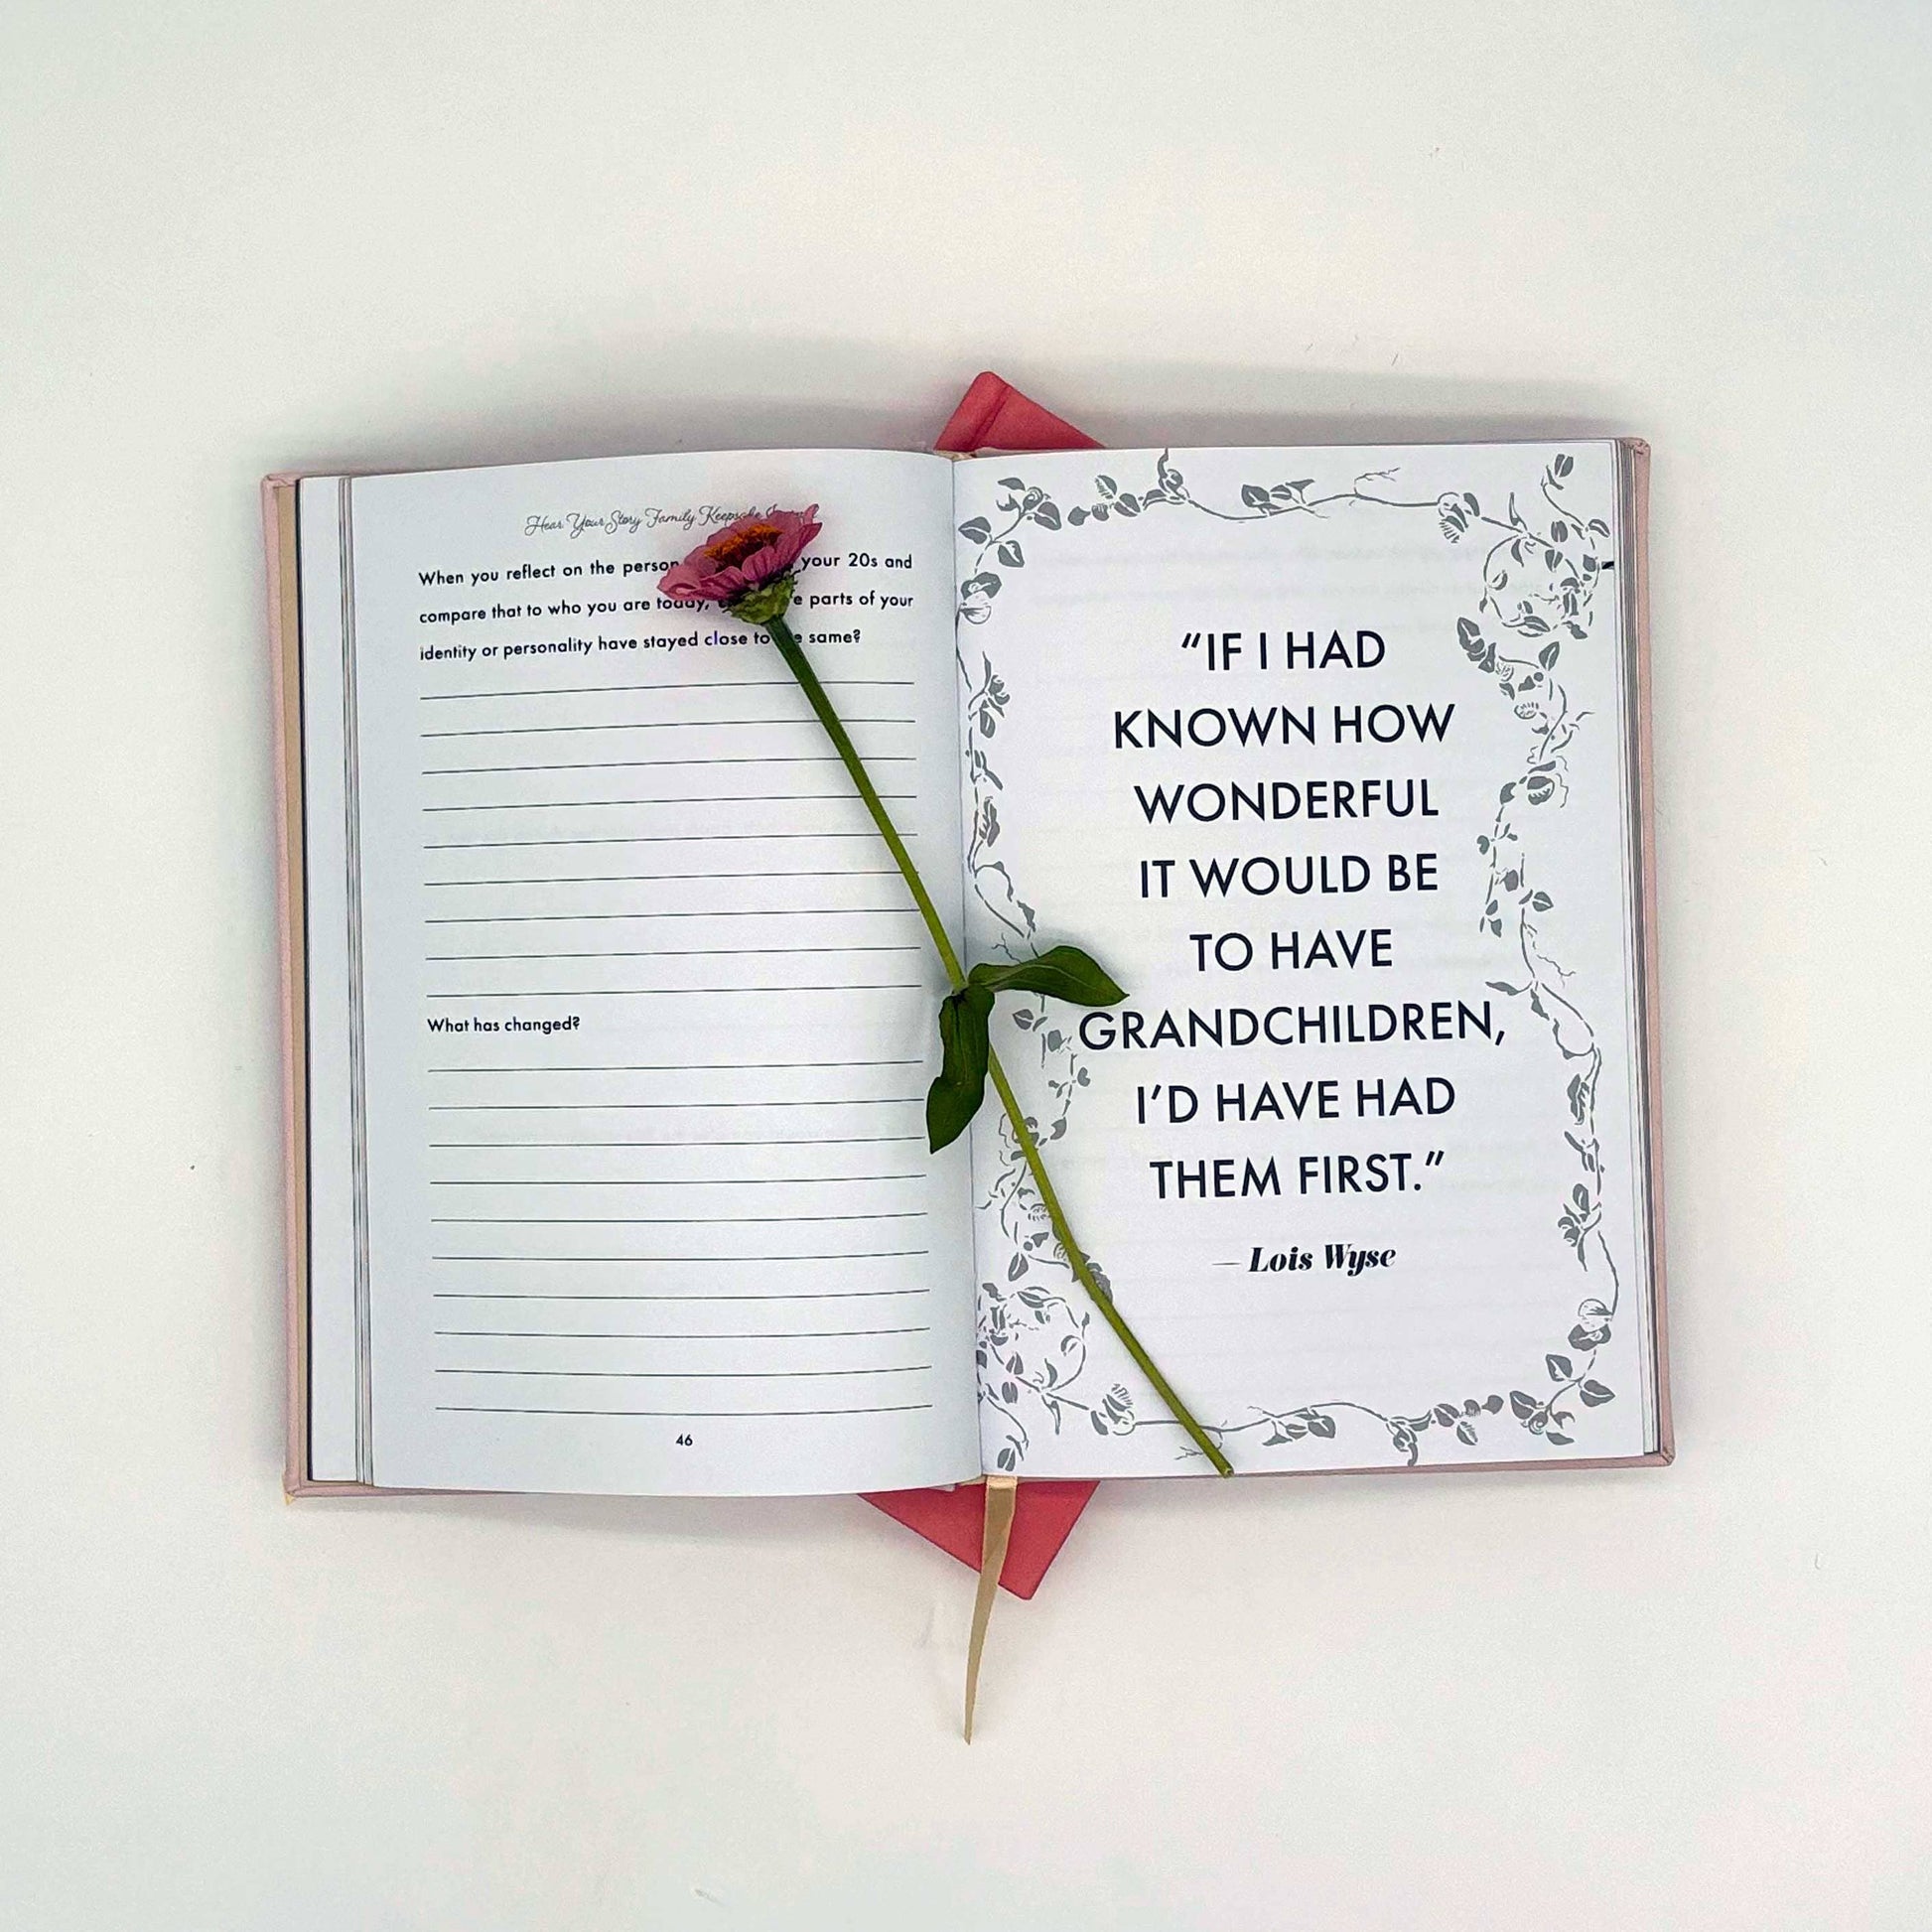 Hear Your Story Family Keepsake
When you reflect on the person your 20s and
compare that to who you are today, parts of your
identity or personality have stayed close to same?
What has changed?
46
“IF I HAD
KNOWN HOW
WONDERFUL
IT WOULD BE
TO HAVE
GRANDCHILDREN,
I’D HAVE HAD
THEM FIRST.”
— Lois Wyse